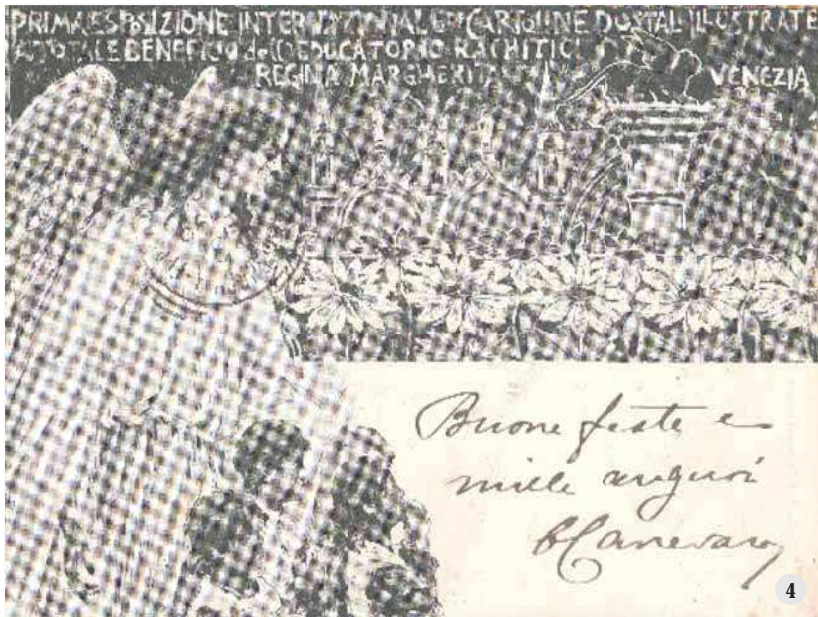 PRIMA ESPOSIZIONE INTERNAZIONALE DI CARTOLINE POSTALI ILLUSTRATE
A TOTALE BENEFICIO dell'EDUCATORIO RACHITICI
REGINA MARGHERITA VENEZIA
Buone feste e
mille auguri
Canevaro
4